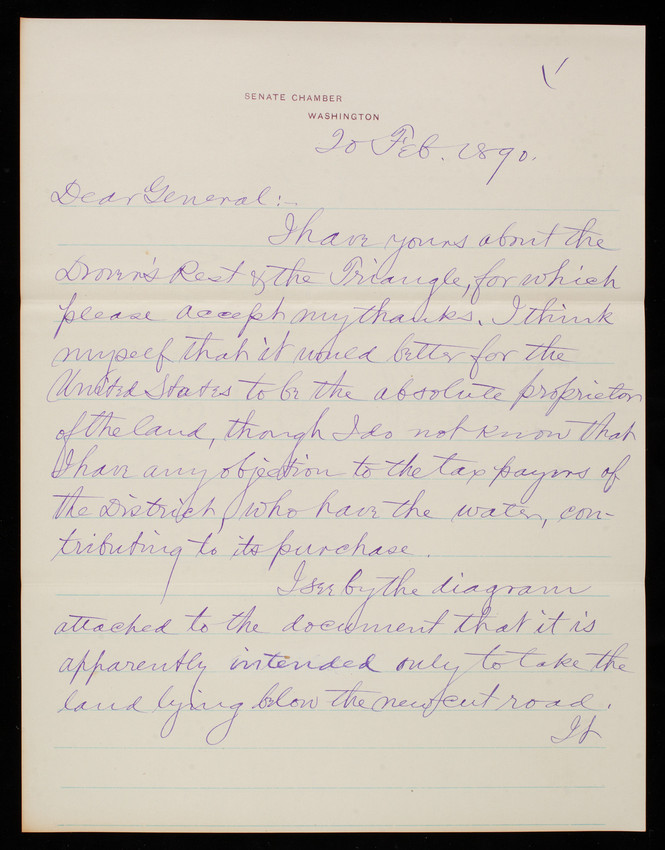 SENATE CHAMBER
WASHINGTON
20 Feb. 1890.
Dear General:-
I have yours about the
Drover's Rest & the Triangle, for which
please accept my thanks. I think
myself that it would better for the
United States to be the absolute proprietor
of the land, though I do not know that
I have any objection to the tax payers of
the District, who have the water, con-
tributing to its purchase.
I see by the diagram
attached to the document that it is
apparently intended only to take the
land lying below the new cut road.
It